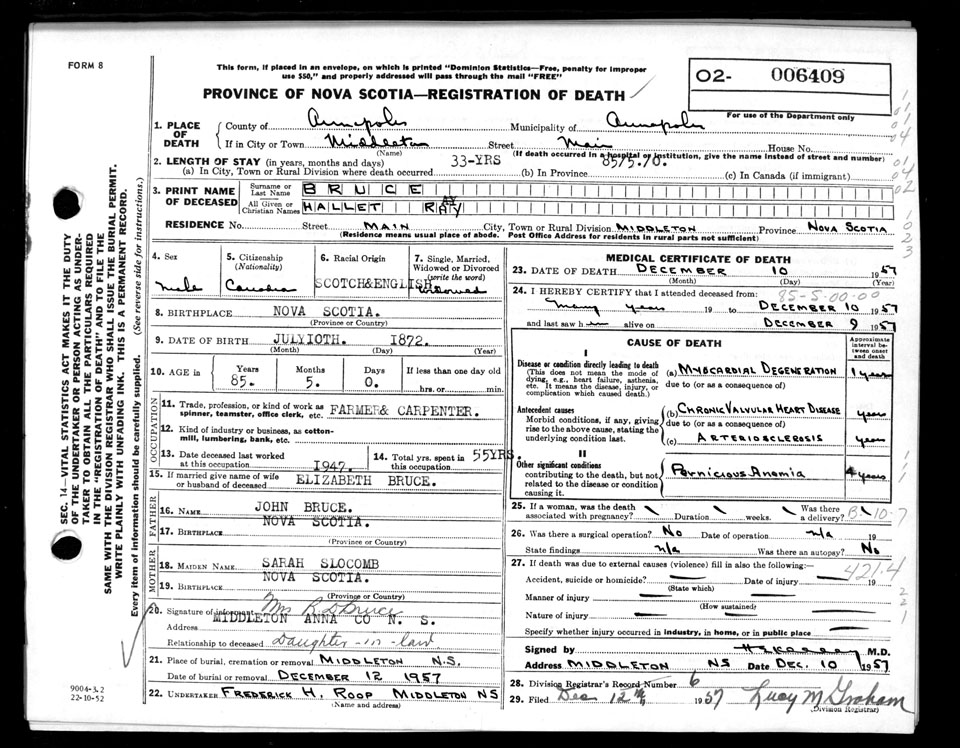 FORM 8
This form, if placed in an envelope, on which is printed "Dominion Statistics—Free, penalty for improper
use $50," and properly addressed will pass through the mail "FREE"
PROVINCE OF NOVA SCOTIA—REGISTRATION OF DEATH
02- 006409
For use of the Department only
1. PLACE OF DEATH
County of Annapolis Municipality of Annapolis
If in City or Town Middleton Street Main House No.
(Name) (If death occurred in a hospital or institution, give the name instead of street and number)
2. LENGTH OF STAY (in years, months and days)
(a) In City, Town or Rural Division where death occurred 33-YRS (b) In Province 85/5/0. (c) In Canada (if immigrant)
3. PRINT NAME OF DECEASED
Surname or Last Name BRUCE
All Given or Christian Names HALLET RAY
RESIDENCE No. Street MAIN City, Town or Rural Division MIDDLETON Province NOVA SCOTIA
(Residence means usual place of abode. Post Office Address for residents in rural parts not sufficient)
4. Sex
Male
5. Citizenship
(Nationality)
Canadian
6. Racial Origin
SCOTCH&ENGLISH
7. Single, Married, Widowed or Divorced
(write the word)
Widowed
8. BIRTHPLACE NOVA SCOTIA.
(Province or Country)
9. DATE OF BIRTH JULY10TH. 1872.
(Month) (Day) (Year)
10. AGE in Years Months Days If less than one day old
85. 5. 0. hrs. or min.
OCCUPATION
11. Trade, profession, or kind of work as
spinner, teamster, office clerk, etc. FARMER& CARPENTER.
12. Kind of industry or business, as cotton-
mill, lumbering, bank, etc.
13. Date deceased last worked
at this occupation 1947.
14. Total yrs. spent in
this occupation 55YRS.
15. If married give name of wife
or husband of deceased ELIZABETH BRUCE.
FATHER
16. NAME JOHN BRUCE.
17. BIRTHPLACE NOVA SCOTIA.
(Province or Country)
MOTHER
18. MAIDEN NAME SARAH SLOCOMB
19. BIRTHPLACE NOVA SCOTIA.
(Province or Country)
20. Signature of informant Mrs R D Bruce
Address MIDDLETON ANNA CO N. S.
Relationship to deceased Daughter-in-law
21. Place of burial, cremation or removal MIDDLETON N.S.
Date of burial or removal DECEMBER 12 1957
22. UNDERTAKER FREDERICK H. ROOP MIDDLETON NS
(Name and address)
MEDICAL CERTIFICATE OF DEATH
23. DATE OF DEATH DECEMBER 10 1957
(Month) (Day) (Year)
85-5-00-00
24. I HEREBY CERTIFY that I attended deceased from:
many years 19 to DECEMBER 10 1957
and last saw him alive on DECEMBER 9 1957
CAUSE OF DEATH
Approximate interval between onset and death
I
Disease or condition directly leading to death
(This does not mean the mode of dying, e.g., heart failure, asthenia, etc. It means the disease, injury, or complication which caused death.)
(a) MYOCARDIAL DEGENERATION 1 year
due to (or as a consequence of)
Antecedent causes
Morbid conditions, if any, giving rise to the above cause, stating the underlying condition last.
(b) CHRONIC VALVULAR HEART DISEASE years
due to (or as a consequence of)
(c) ARTERIOSCLEROSIS years
II
Other significant conditions
contributing to the death, but not related to the disease or condition causing it.
Pernicious Anemia years
25. If a woman, was the death
associated with pregnancy? Duration weeks. Was there a delivery?
26. Was there a surgical operation? No Date of operation n/a
State findings n/a Was there an autopsy? No
27. If death was due to external causes (violence) fill in also the following:—
421.4
Accident, suicide or homicide? Date of injury 19
(State which)
Manner of injury
(How sustained)
Nature of injury
Specify whether injury occurred in industry, in home, or in public place
Signed by M.D.
Address MIDDLETON NS Date DEC. 10 1957
28. Division Registrar's Record Number 6
29. Filed Dec 12th 1957 Lucy M Graham
(Division Registrar)
SEC. 14—VITAL STATISTICS ACT MAKES IT THE DUTY
OF THE UNDERTAKER OR PERSON ACTING AS UNDER-
TAKER TO OBTAIN ALL THE PARTICULARS REQUIRED
IN THE "REGISTRATION OF DEATH" AND TO FILE THE
SAME WITH THE DIVISION REGISTRAR WHO SHALL ISSUE THE BURIAL PERMIT.
WRITE PLAINLY WITH UNFADING INK. THIS IS A PERMANENT RECORD.
Every item of information should be carefully supplied. (See reverse side for instructions.)
9004-3.2
22-10-52